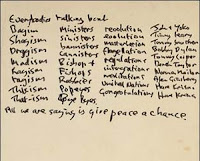 Everybodies talking bout
Bagism Ministers revolution John & Yoko
Shagism sinisters evolution Timmy Leary
bannisters masturbation Tommy Smothers
canisters flagellation Bobby Dylan
Madism Bishops regulations Tommy Cooper
Ragism Fishops integrations Derek Taylor
Tagism Rabbis meditations Norman Mailer
Thisism Popeyes United Nations Alan Ginsberg
That-ism bye byes. Congratulations Hare Krishna
Hare Krishna
All we are saying is give peace a chance